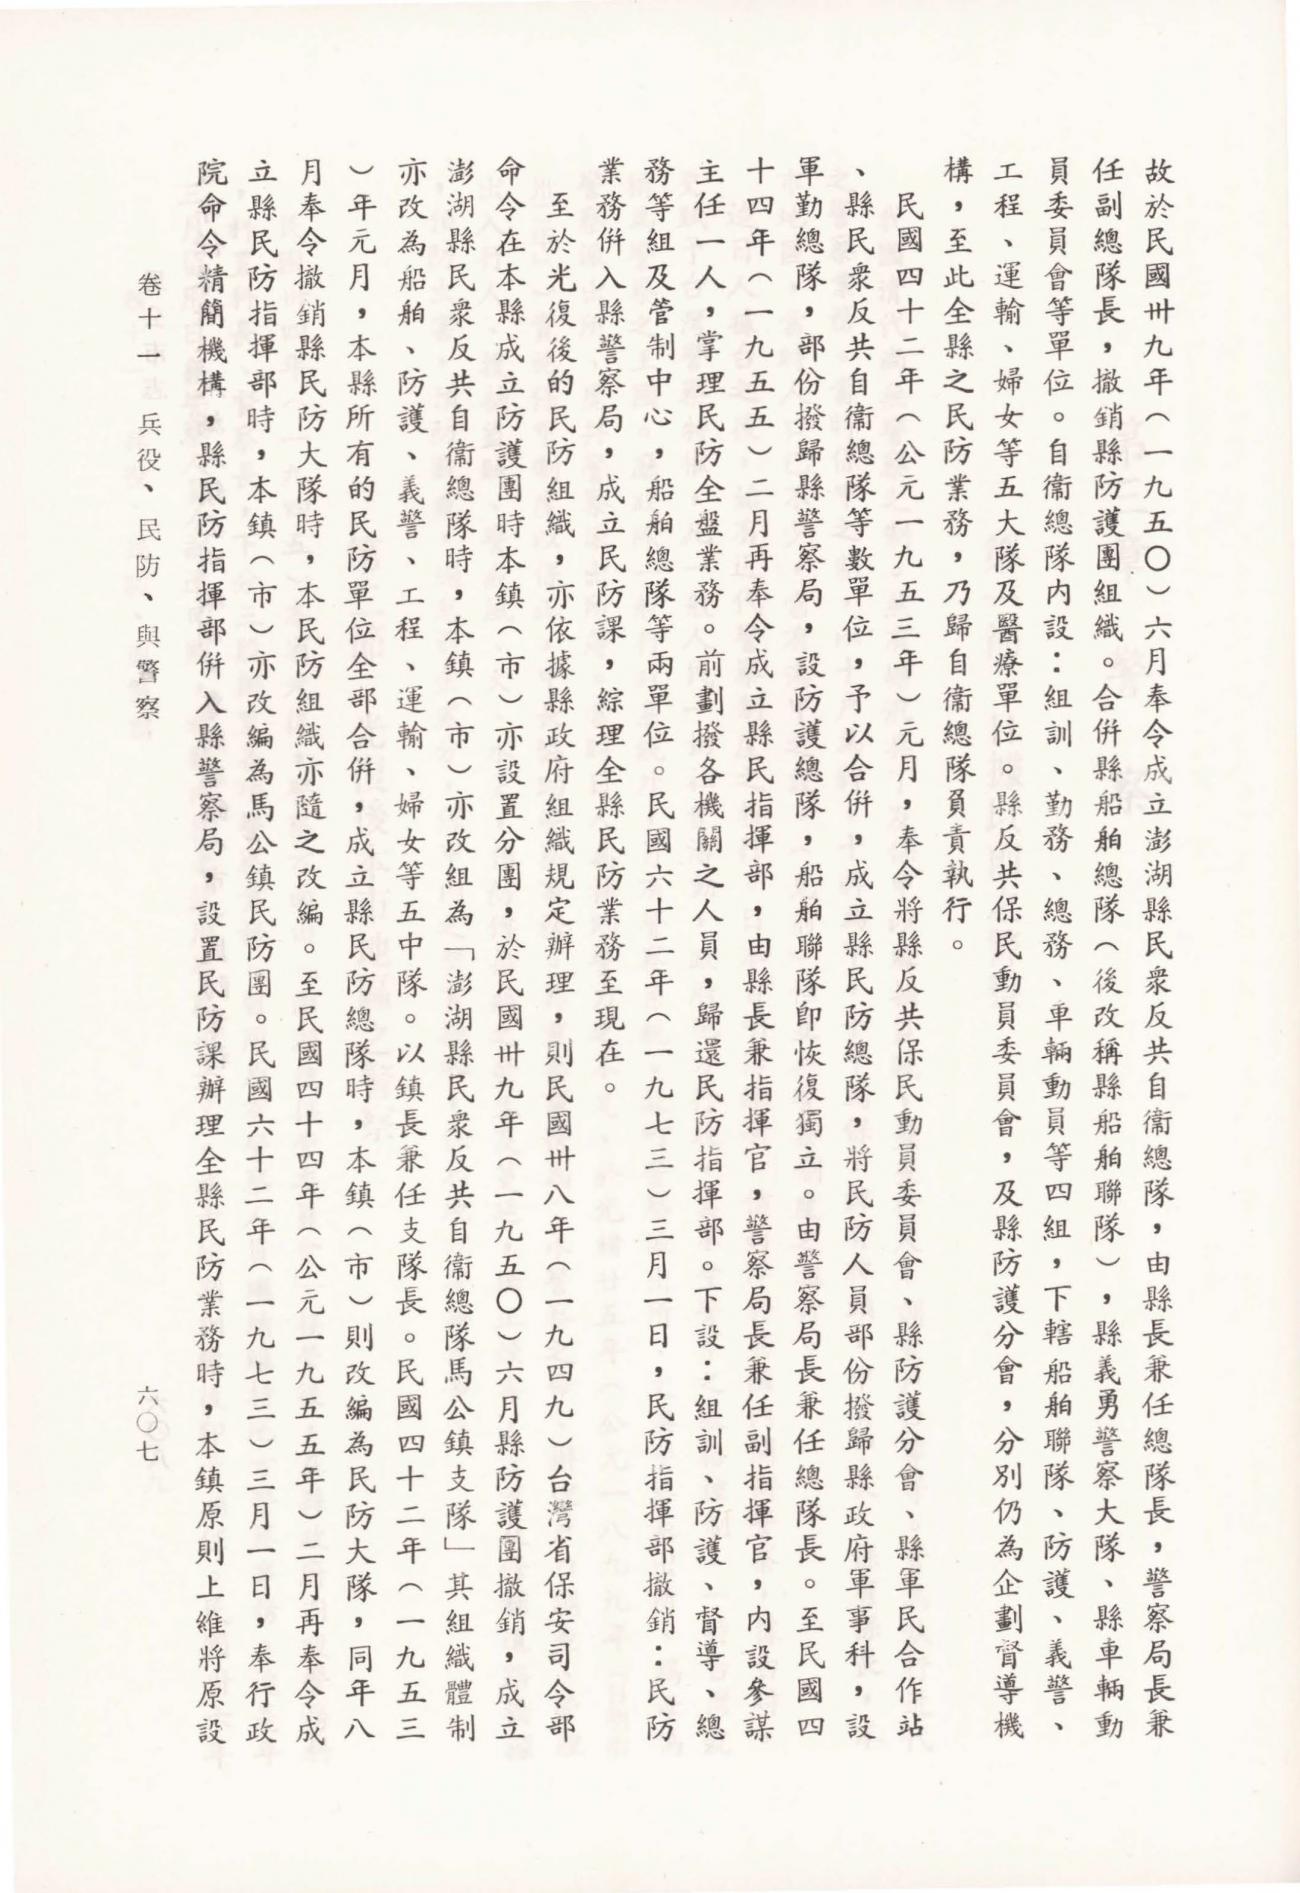 故於民國卅九年（一九五〇）六月奉令成立澎湖縣民衆反共自衞總隊，由縣長兼任總隊長，警察局長兼
任副總隊長，撤銷縣防護團組織。合併縣船舶總隊（後改稱縣船舶聯隊），縣義勇警察大隊、縣車輛動
員委員會等單位。自衞總隊內設：組訓、勤務、總務、車輛動員等四組，下轄船舶聯隊、防護、義警、
工程、運輸、婦女等五大隊及醫療單位。縣反共保民動員委員會，及縣防護分會，分別仍為企劃督導機
構，至此全縣之民防業務，乃歸自衞總隊負責執行。
民國四十二年（公元一九五三年）元月，奉令將縣反共保民動員委員會、縣防護分會、縣軍民合作站
、縣民衆反共自衞總隊等數單位，予以合併，成立縣民防總隊，將民防人員部份撥歸縣政府軍事科，設
軍勤總隊，部份撥歸縣警察局，設防護總隊，船舶聯隊卽恢復獨立。由警察局長兼任總隊長。至民國四
十四年（一九五五）二月再奉令成立縣民指揮部，由縣長兼指揮官，警察局長兼任副指揮官，內設參謀
主任一人，掌理民防全盤業務。前劃撥各機關之人員，歸還民防指揮部。下設：組訓、防護、督導、總
務等組及管制中心，船舶總隊等兩單位。民國六十二年（一九七三）三月一日，民防指揮部撤銷：民防
業務併入縣警察局，成立民防課，綜理全縣民防業務至現在。
至於光復後的民防組織，亦依據縣政府組織規定辦理，則民國卅八年（一九四九）台灣省保安司令部
命令在本縣成立防護團時本鎮（市）亦設置分團，於民國卅九年（一九五〇）六月縣防護團撤銷，成立
澎湖縣民衆反共自衞總隊時，本鎮（市）亦改組為「澎湖縣民衆反共自衞總隊馬公鎮支隊」其組織體制
亦改為船舶、防護、義警、工程、運輸、婦女等五中隊。以鎮長兼任支隊長。民國四十二年（一九五三
）年元月，本縣所有的民防單位全部合併，成立縣民防總隊時，本鎮（市）則改編為民防大隊，同年八
月奉令撤銷縣民防大隊時，本民防組織亦隨之改編。至民國四十四年（公元一九五五年）二月再奉令成
立縣民防指揮部時，本鎮（市）亦改編為馬公鎮民防團。民國六十二年（一九七三）三月一日，奉行政
院命令精簡機構，縣民防指揮部併入縣警察局，設置民防課辦理全縣民防業務時，本鎮原則上維將原設
卷十一　兵役、民防、與警察
六〇七